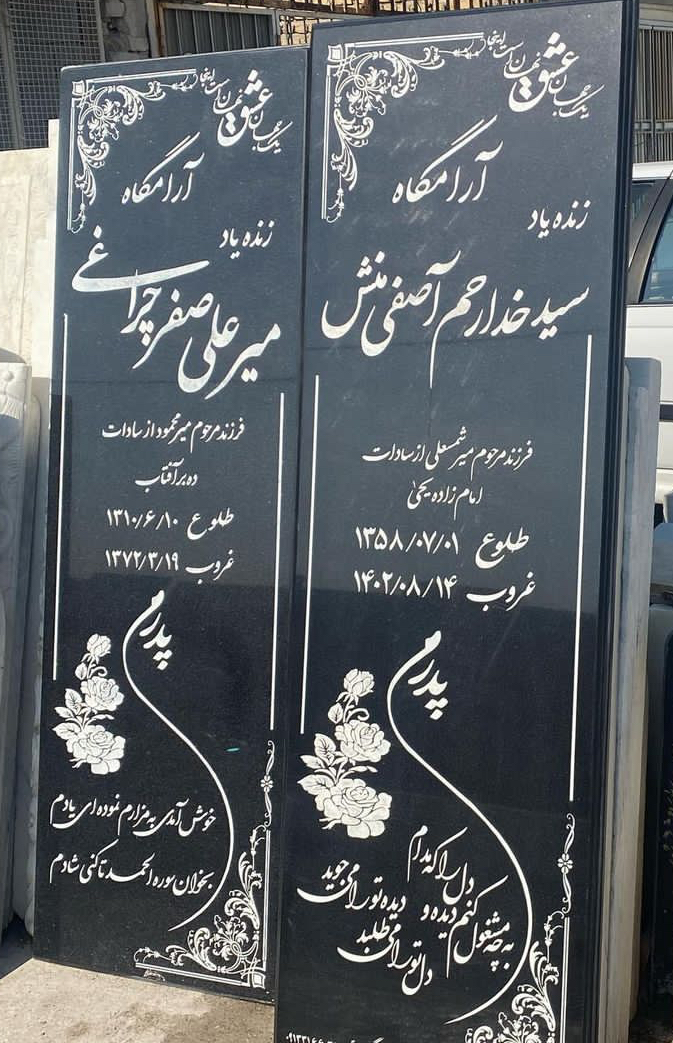 یک جهان عشق نهان است اینجا
آرامگاه
زنده یاد
سید خدارحم آصفی منش
فرزند مرحوم میر شمسعلی از سادات
امام زاده یحیی
طلوع ۱۳۵۸/۰۷/۰۱
غروب ۱۴۰۲/۰۸/۱۴
پدرم
دل را که مدام
دیده تو را می جوید
به چه مشغول کنم دیده و
دل تو را می طلبد
یک جهان عشق نهان است اینجا
آرامگاه
زنده یاد
میر علی صفر چراغی
فرزند مرحوم میر محمود از سادات
ده برآفتاب
طلوع ۱۳۱۰/۶/۱۰
غروب ۱۳۷۲/۳/۱۹
پدرم
خوش آمدی به مزارم نموده ای یادم
بخوان سوره الحمد تا کنی شادم